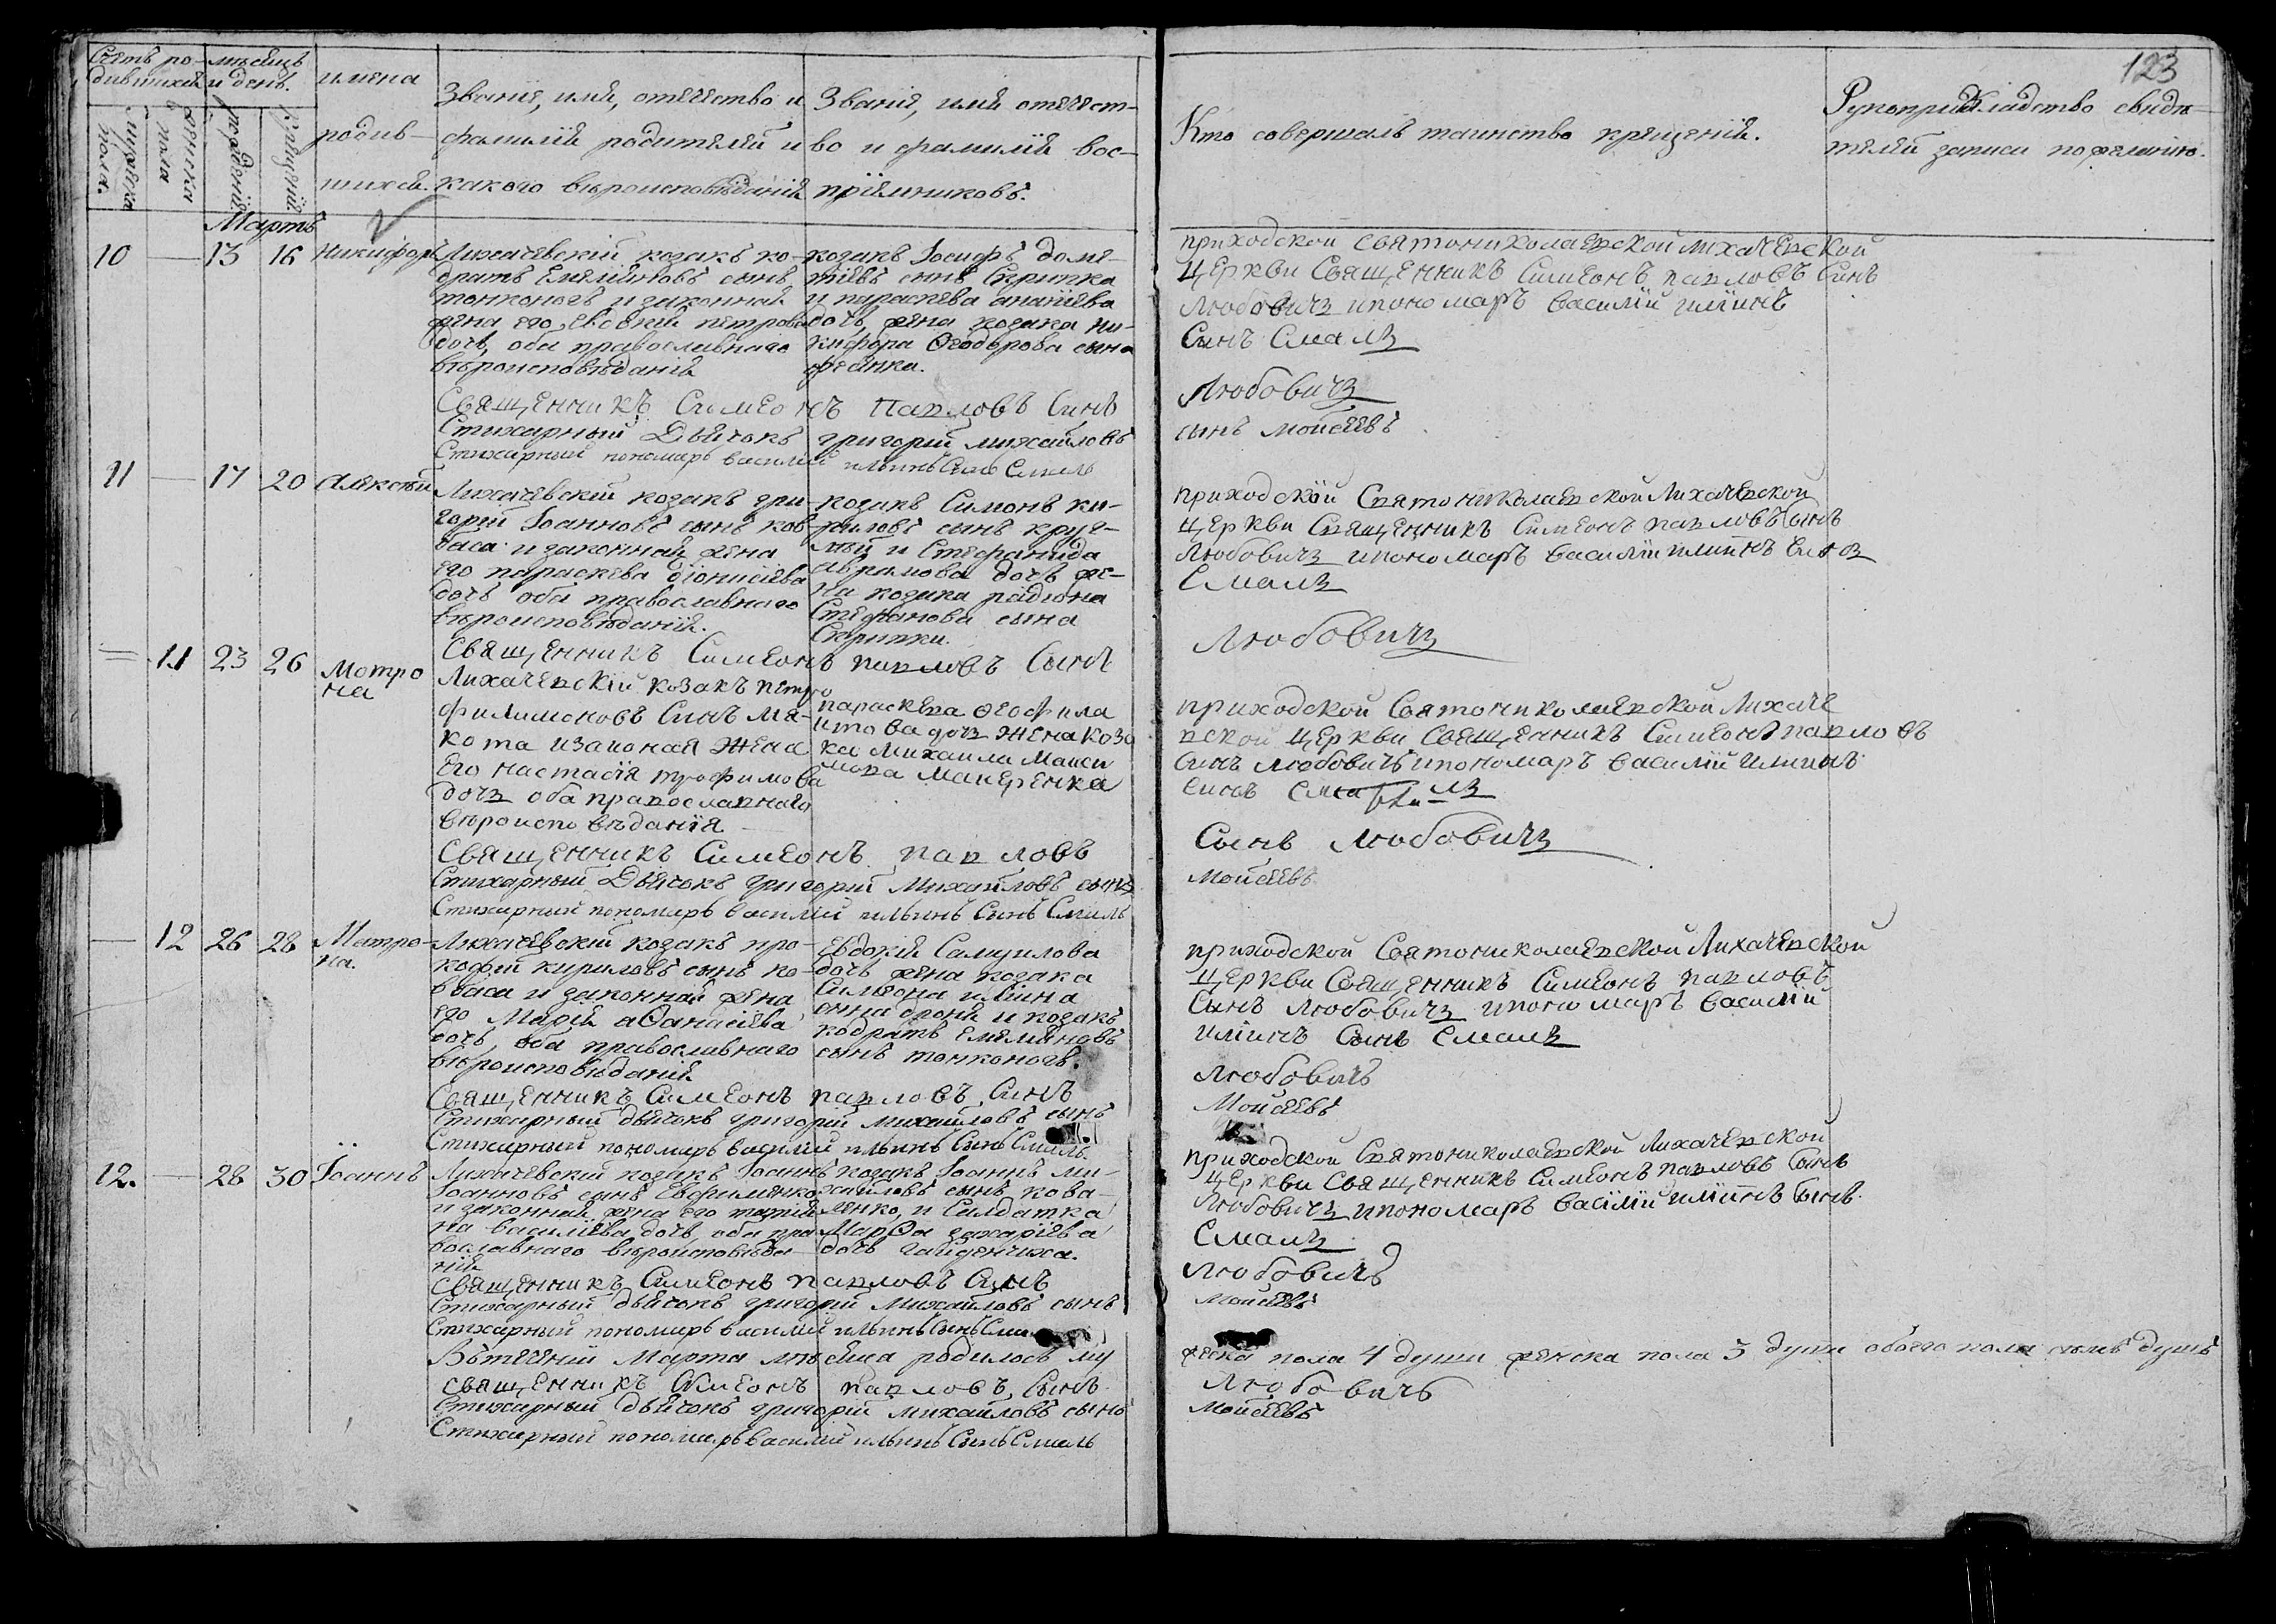 123
Счетъ ро-
дившихся
мѣсяцъ
и день.
имена
родив-
шихся.
мужеска
пола.
женска
пола
рожденія.
крещенія.
Званіе, имя, отечество и
фамилія родителей и
какого вѣроисповѣданія
Званіе, имя отечест-
во и фамилія вос-
пріемниковъ.
Кто совершалъ таинство крещенія.
Рукоприкладство свидѣ-
телей записи по желанію.
Мартъ
10 — 13 16 Никифоръ
Лихачевскій козакъ ко-
дратъ Емеліяновъ сынъ
тонконогъ и законная
жена его, Евдокія петрова
дочь, оба православнаго
вѣроисповѣданія
козакъ Іосифъ доме-
тіевъ сынъ Скрипка
и параскева ананіева
дочь, жена козака ни-
кифора Ѳеодорова сына
приходской святониколаевской лихачевской
Церкви Священникъ Симеонъ павловъ Синъ
Любовичъ ипономаръ василій иліинъ
Сынъ Смалъ
Священникъ Симеонъ Павловъ Синъ
Любовичъ
Стихарный Дьячокъ григорій михайловъ
сынъ мойсеевъ
Стихарный пономарь василій ильинъ Сынъ Смаль
11 — 17 20 Алексѣй
Лихачевскій козакъ гри-
горій Іоанновъ сынъ ков-
баса и законная жена
его параскева діонисіева
дочь оба православнаго
вѣроисповѣданія.
козакъ Симонъ ки-
риловъ сынъ круг-
лый и Стефанида
аврамова дочь же-
на козака радіона
Стефанова сына
Скрипки.
приходской Святониколаевской Лихачевской
церкви Священникъ Симеонъ павловъ сынъ
Любовичъ ипономаръ василіи илиинъ Синъ
Смалъ
Священникъ Симеонъ павловъ Сынъ
Любовичъ
= 11 23 26 Мотро
на
Лихачевскій козакъ петро
филимоновъ Синъ Мя-
кота изаконая жена
Его настасія трофимова
дочъ оба православнаго
вѣроисповѣданія
параскева Ѳеофила
ктова дочъ жена коза
ка Михаила Макси
мова
приходской Святониколаевской Лихаче
вской церкви Священникъ Симеонъ павловъ
Синъ Любовичъ ипономаръ василій илиинъ
Синъ
Священникъ Симеонъ павловъ
Сынъ Любовичъ
Стихарный Дьячокъ григорій Михайловъ сынъ
Мойсеевъ
Стихарный пономарь василій ильинъ Сынъ Смаль
— 12 26 28 Матро-
на.
Лихачевскій козакъ про-
кофій кириловъ сынъ ко-
вбаса и законная жена
его Марія аѲанасіева
дочь, оба православнаго
вѣроисповѣданія
Евдокія Самуилова
дочь жена козака
Симеона иліина
сына дрока и козакъ
кодратъ Емеліяновъ
сынъ тонконогъ.
приходской Святониколаевской Лихачевской
Церкви Священникъ Симеонъ павловъ
Сынъ Любовичъ ипономаръ василій
иліинъ Сынъ Смалъ
Священникъ Симеонъ павловъ Синъ
Любовичъ
Стихарный дьячокъ григорій михайловъ сынъ
Мойсеевъ
Стихарный пономарь василій ильинъ Сынъ Смаль
12. — 28 30 Іоаннъ
Лихачевскій козакъ Іоаннъ
Іоанновъ сынъ Евфименко
и законная жена его татія-
на василіева дочь, оба пра
вославнаго вѣроисповѣда
нія
козакъ Іоаннъ ми-
хайловъ сынъ кова-
ленко, и Салдатка
МарѲа захаріева
дочь гайденчиха.
приходской Святониколаевской Лихачевской
церкви Священникъ Симеонъ павловъ Сынъ
Любовичъ ипономаръ василій иліинъ Сынъ
Смалъ
Священникъ Симеонъ павловъ Синъ
Любовичъ
Стихарный дьячокъ григорій Михайловъ сынъ
Мойсеевъ
Стихарный пономарь василій ильинъ Сынъ
Въ теченіи Марта мѣсяца родилось му
жеска пола 4 души женска пола 3 души обоего пола семь душъ
священникъ Симеонъ павловъ, Сынъ
Любовичъ
Стихарный дьячокъ григорій михайловъ сынъ
Мойсеевъ
Стихарный пономарь василій ильинъ Сынъ Смаль